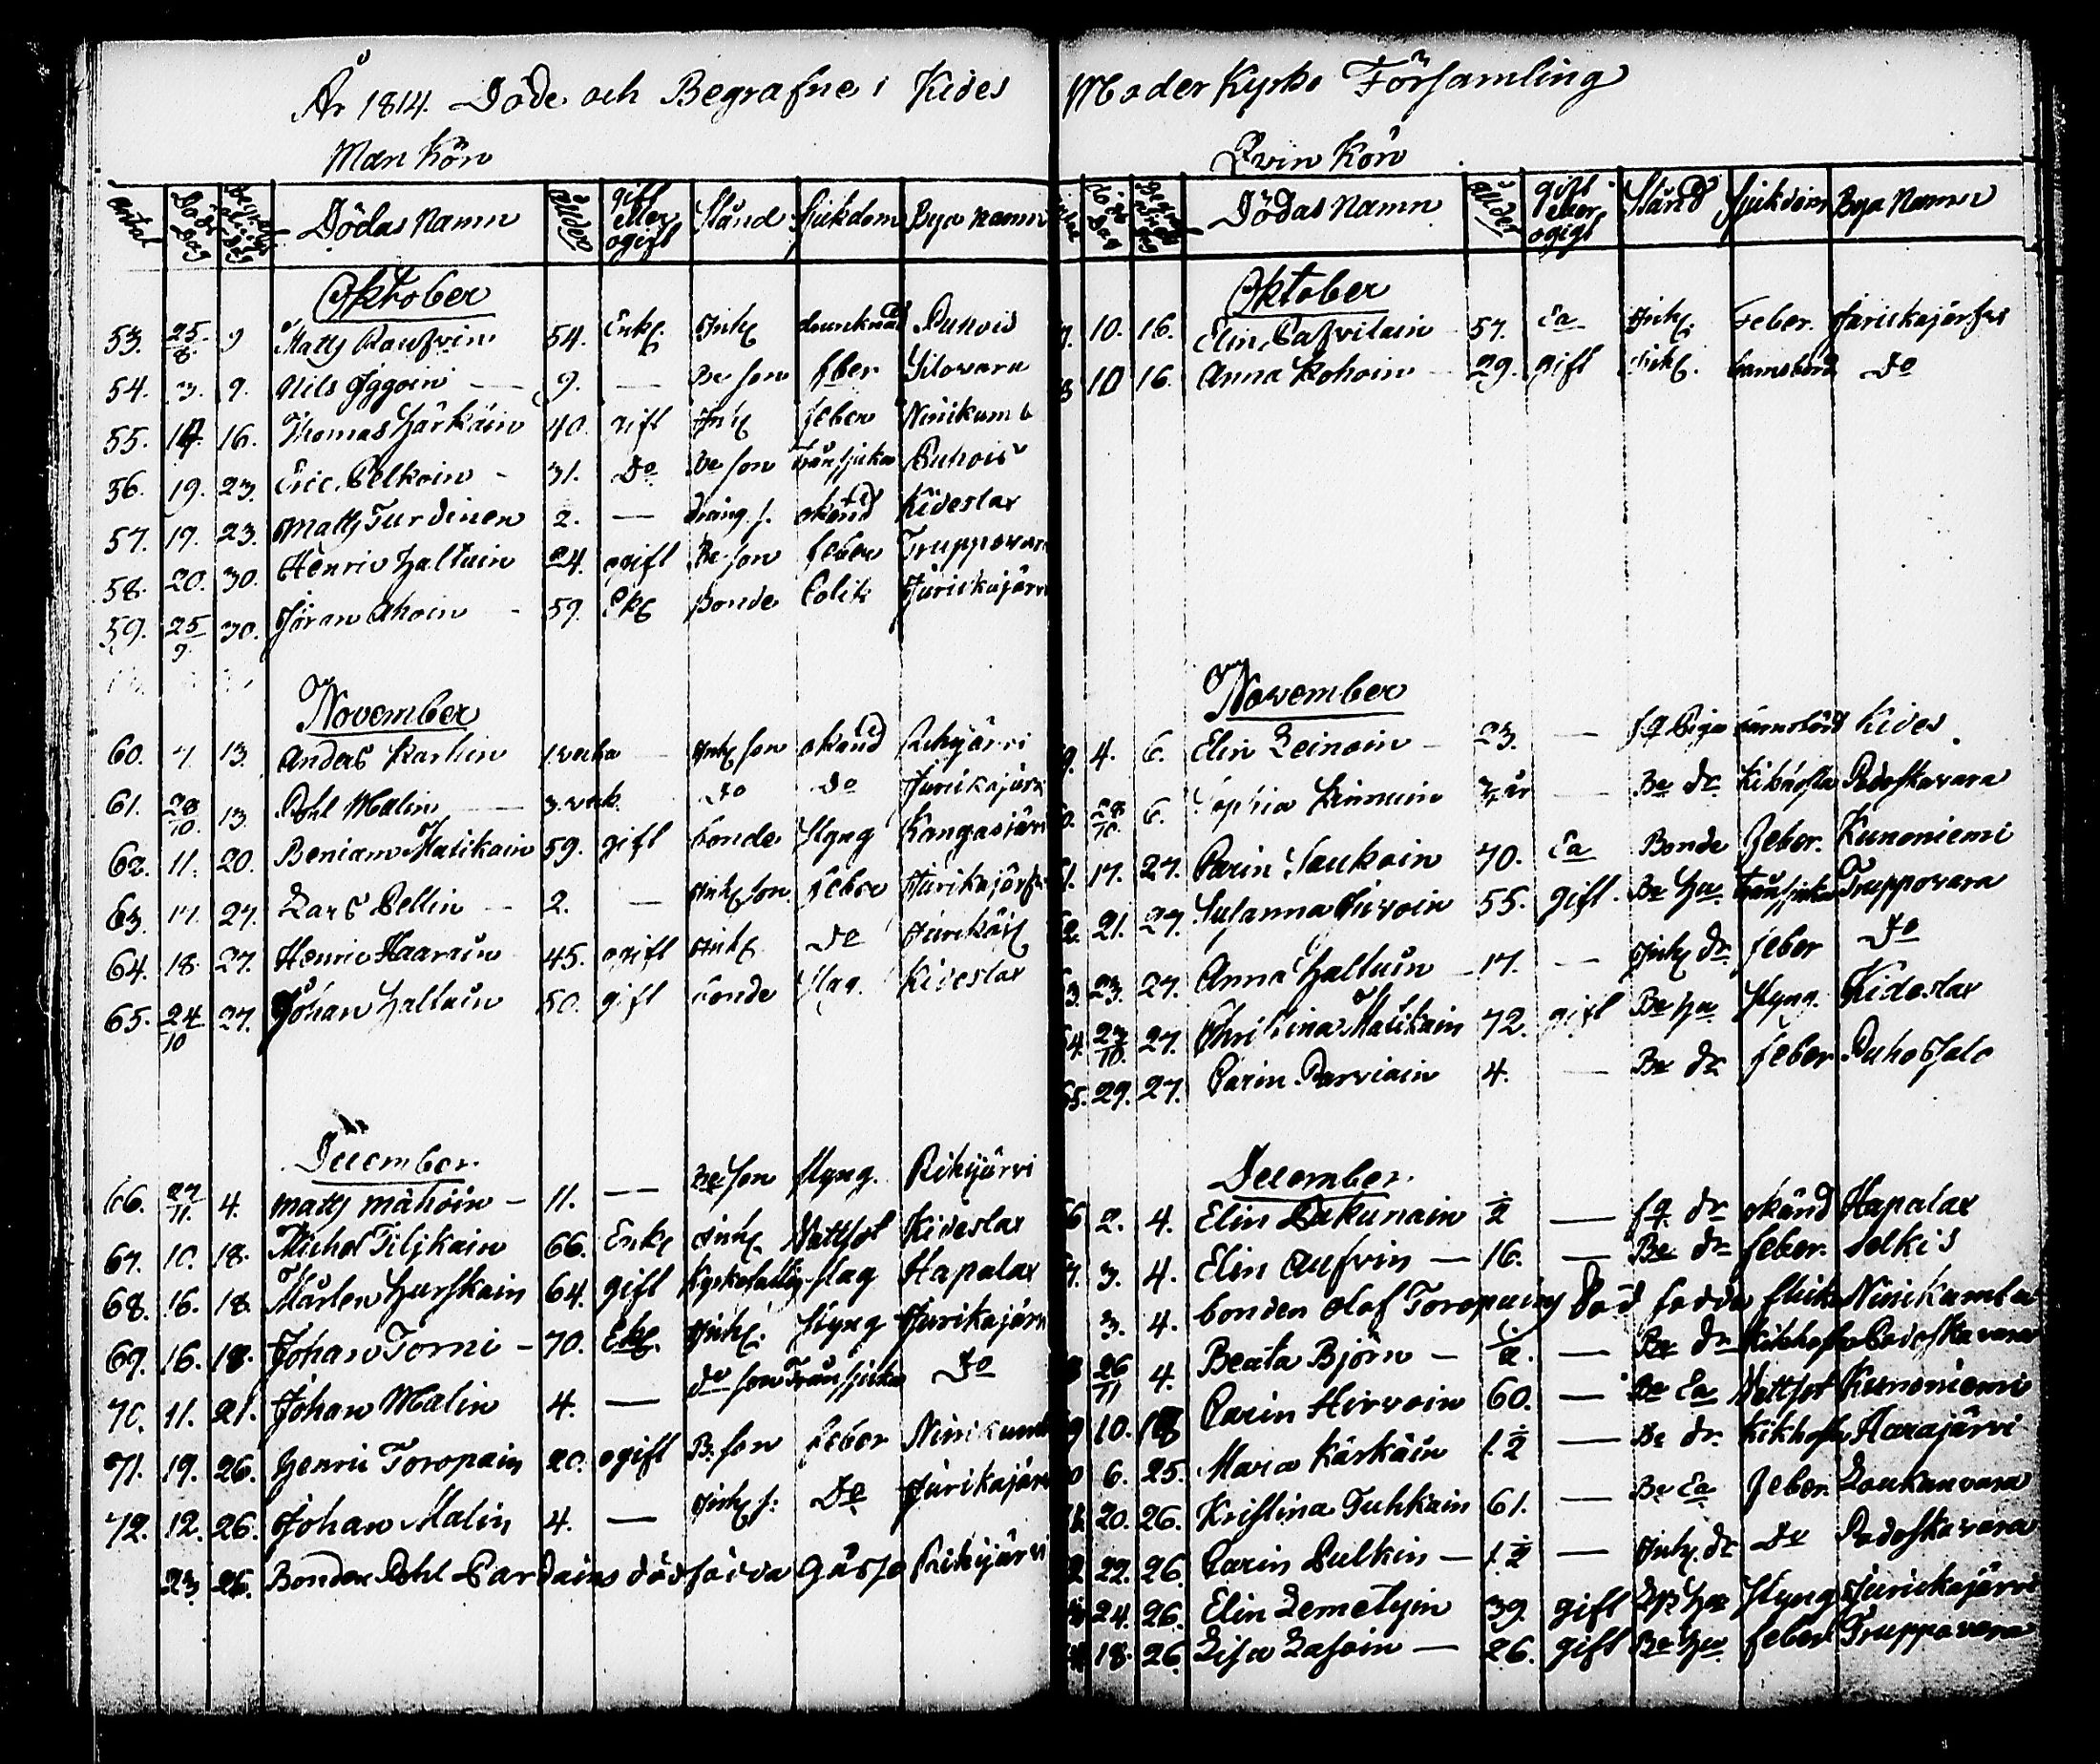 År 1814. Döde och Begrafne i Kides Moderkyrko Församling
Man Kön
antal Döde Dag Dödas Namn ålder gift eller ogift Stånd Sjukdom Bya namn
Oktober
53. 25/8. 9 Matts 54. Enkl. Inh. drunknad Puhois
54. 3. 9. Nils Iggoin — 9. — Be son feber Silovara
55. 14. 16. Thomas Härkäin 40. gift Inh. feber Ninikumb
56. 19. 23. Eric Pelkoin - 31. Do Be son Puhois
57. 19. 23. Matts Turdinen 2. — dräng s. okänd Kideslax
58. 20. 30. Henric Haltuin 24. ogift Be son feber Truppovara
59. 25/9 30. Jöran Ahoin - 59. Ekl Bonde Colik Jurickajärvi
November
60. 7 13. Anders Karhin 1 vecka — Inh. son okänd Rihijärvi
61. 28/10. 13. Pohl Malin — 3. veck. Do Do Jurickajärvi
62. 11. 20. Beniam Matikain 59. gift bonde styng Kangasjärvi
63. 17. 27. Lars Pellin — 2. — Inh. son. feber Jurikajärfvi
64. 18. 27. Henric Haarain 45. ogift Inh. Do
65. 24/10 27. Johan Haltuin 50. gift bonde slag. Kideslax
December
66. 27/11. 4. Matts Mähöin — 11. — Be son styng. Rihijärvi
67. 10. 18. Michel Tiljkain 66. Enkl Inh. Vattsot Kideslax
68. 16. 18. Mårten Hurskain 64. gift slag Hapalax
69. 16. 18. Johan Torni — 70. Ekl. Inh. Styng Jurikajärvi
70. 11. 21. Johan Malin 4. — Do son Do
71. 19. 26. Henric Toropain 20. ogift Be. son feber Ninikumb
72. 12. 26. Johan Malin 4. — Inh. s. Do Jurikajärvi
23. 26. Bonden Pohl Pardains dödfödda gosse Rihijärvi
Qvin Kön
Dödas Namn ålder gift eller ogift Stånd Sjukdom Bya Namn
Oktober
10. 16. Elin 57. Ea Inh. Feber. Jurickajärfvi
10 16. Anna Kohoin 29. gift Inh. barnsbörd Do
November
4. 6. Elin Leinoin — 23. — fq Piga barnsbörd Kides.
28/10. 6. Sophia Linnuin 3/4 år — Be dr. Kikhosta Podoskavara
17. 27. Carin Saukoin 70. Ea Bonde Feber. Kunoniemi
21. 27. Susanna Hirvoin 55. gift. Be Hu Truppovara
23. 27. Anna Haltuin — 17. — Inh. dr. feber Do
23/10. 27. Christina Matikain 72. gift Be Hu Styng. Kideslax
65. 29. 27. Carin Parviain 4. — Be dr. feber Puhossalo
December.
66 2. 4. Elin Pakunain ½ — fq. dr okänd Hapalax
3. 4. Elin Aufvin — 16. — Be dr feber. Selkis
3. 4. bonden Olof Toropains död födda flicka Ninikumba
26/11 4. Beata Björn — ½. — Be dr Kikhosta Podoskavara
10. 18 Carin Hirvoin 60. — Be Ea Vattsot Kunoniemi
6. 25. Maria Kärkäin 1 ½ — Be dr. Kikhosta Harajärvi
20. 26. Kristina Tuhkain 61. — Be Ea Feber. Loukanvara
22. 26. Carin Pulkin — 1 ½ — Inh. dr Do Podoskavara
24. 26. Elin Lemetyin 39. gift Hu Styng Jurickajärvi
18. 26. Lisa Lasoin — 26. gift Be Hu feber Truppovara